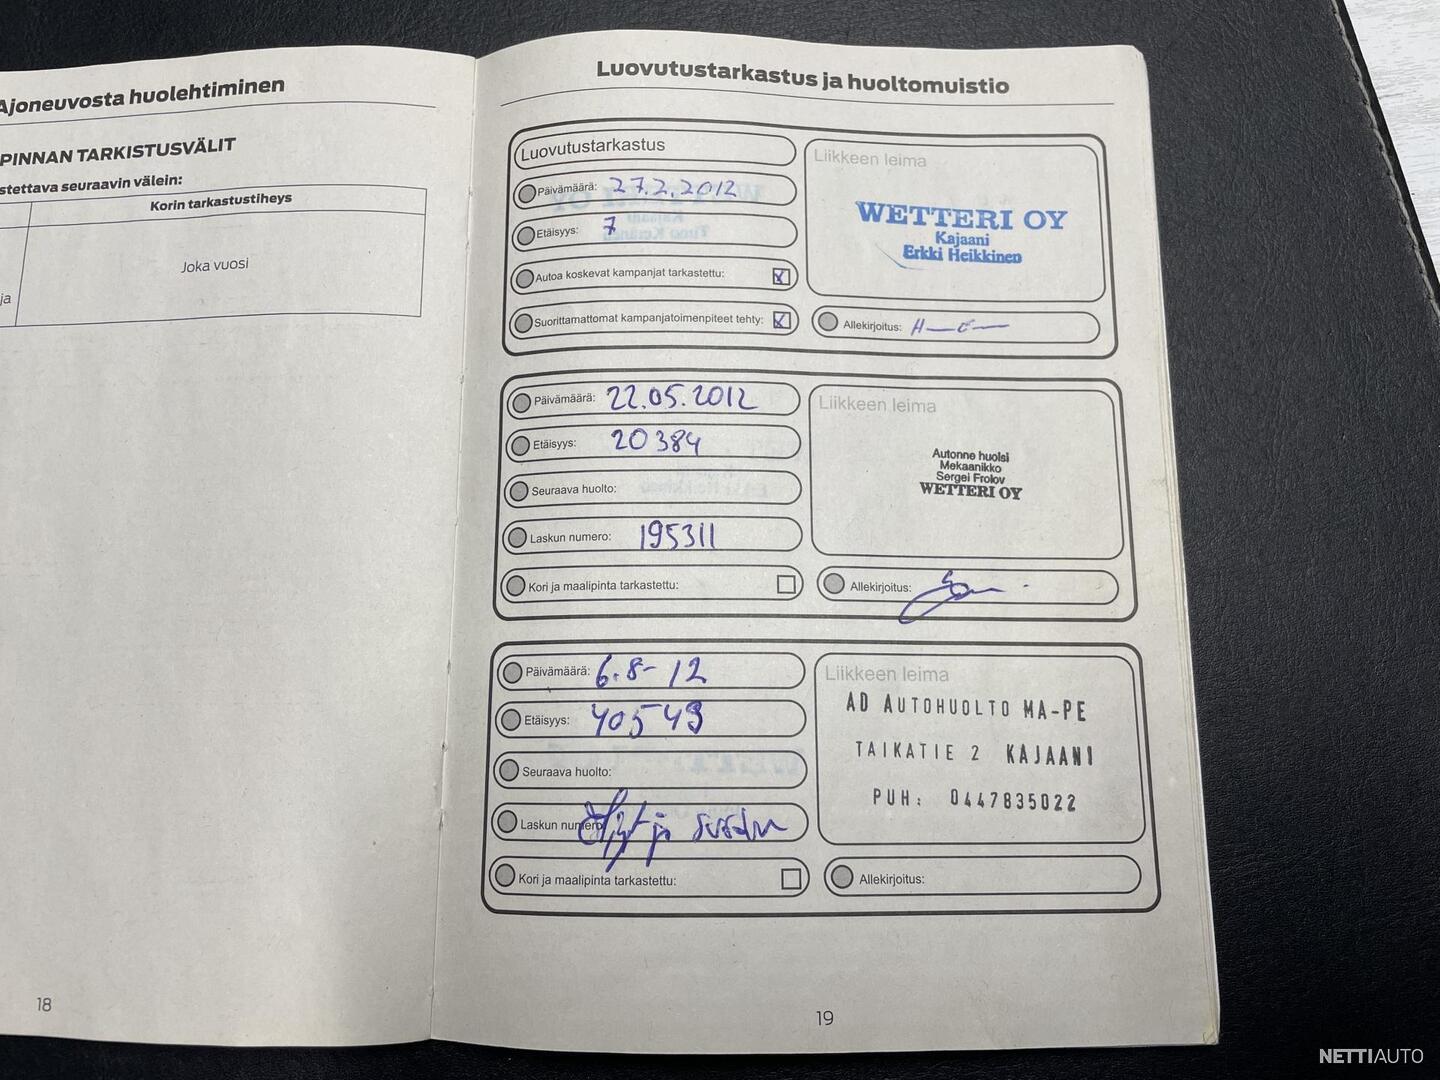 Ajoneuvosta huolehtiminen
PINNAN TARKISTUSVÄLIT
stettava seuraavin välein:
Korin tarkastustiheys
Joka vuosi
ja
18
Luovutustarkastus ja huoltomuistio
Luovutustarkastus
Päivämäärä: 27.2.2012
Etäisyys: 7
Autoa koskevat kampanjat tarkastettu:
Suorittamattomat kampanjatoimenpiteet tehty:
Liikkeen leima
WETTERI OY
Kajaani
Erkki Heikkinen
Allekirjoitus:
Päivämäärä: 22.05.2012
Etäisyys: 20384
Seuraava huolto:
Laskun numero: 195311
Kori ja maalipinta tarkastettu:
Liikkeen leima
Autonne huolsi
Mekaanikko
Sergei Frolov
WETTERI OY
Allekirjoitus:
Päivämäärä: 6.8-12
Etäisyys: 40549
Seuraava huolto:
Laskun numero: ja
Kori ja maalipinta tarkastettu:
Liikkeen leima
AD AUTOHUOLTO MA-PE
TAIKATIE 2 KAJAANI
PUH: 0447835022
Allekirjoitus:
19
NETTIAUTO